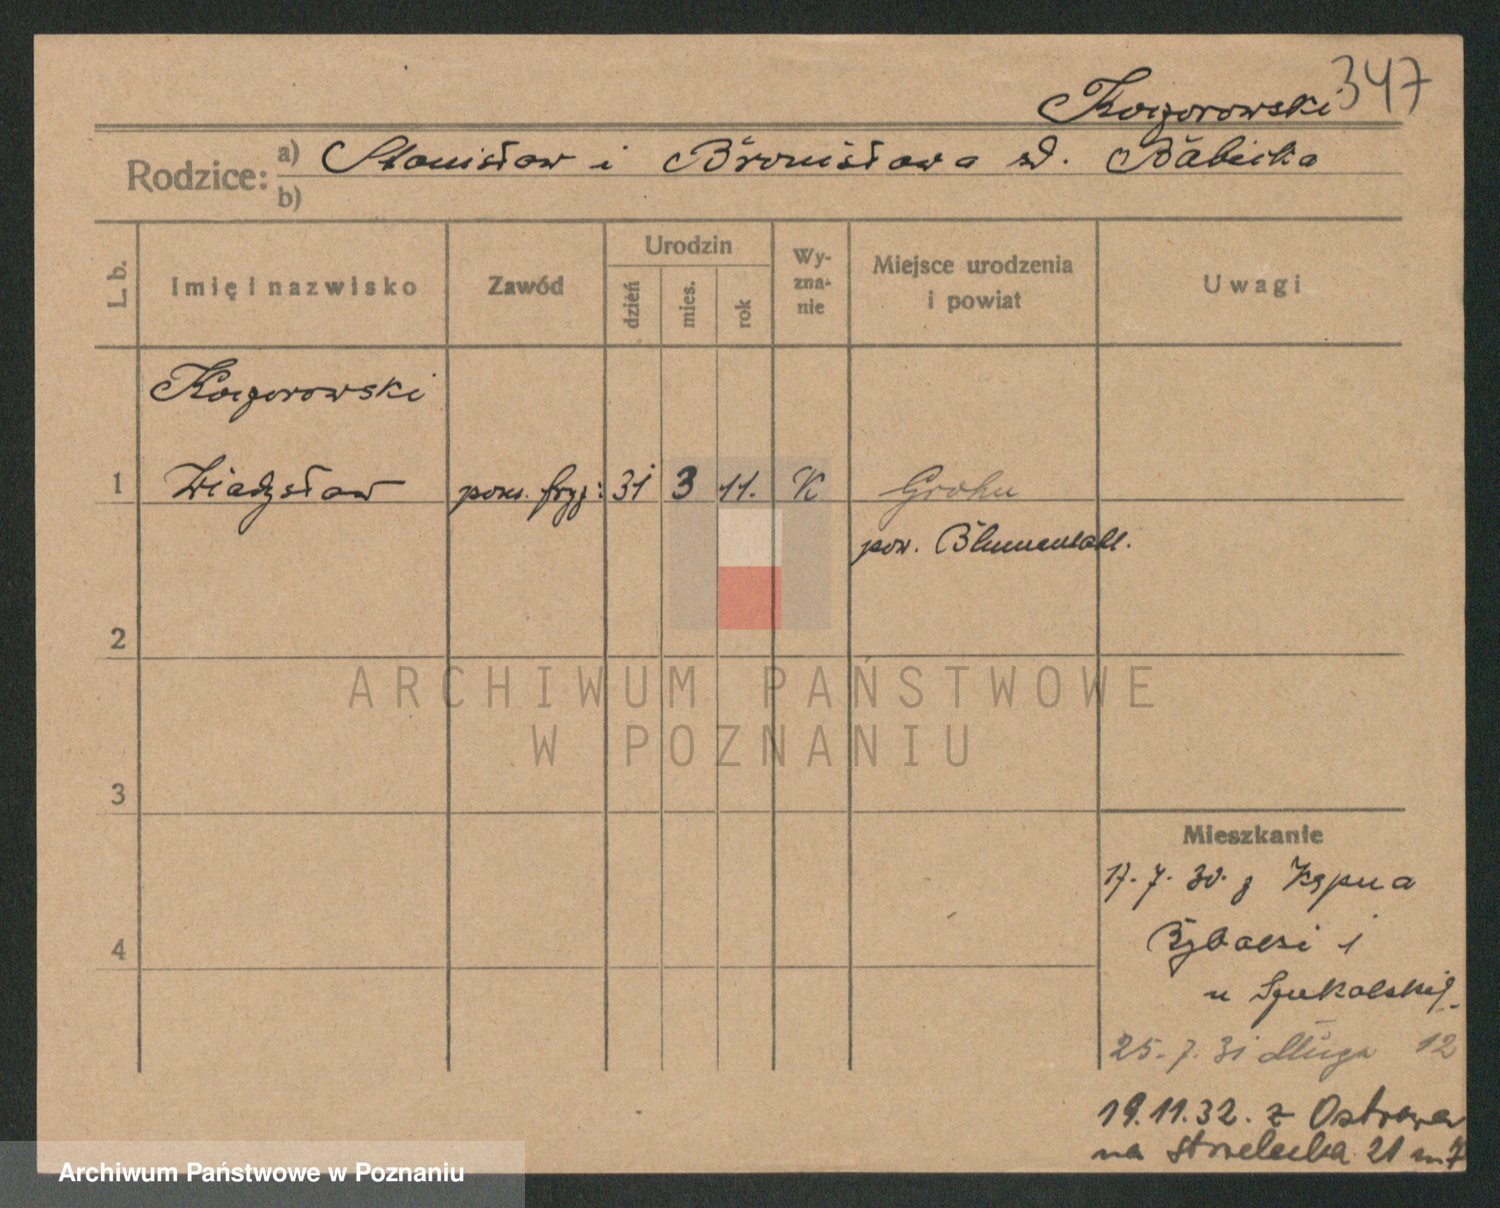 347
Kaczorowski
Rodzice: a) Stanisław i Bronisława d. Babicka
b)
L. b. Imię i nazwisko Zawód Urodzin dzień mies. rok Wyznanie Miejsce urodzenia i powiat Uwagi
Kaczorowski
1 Władysław pom. fryz: 31 3 11. K Grohn
pow. Blumenthal.
2
ARCHIWUM PAŃSTWOWE
W POZNANIU
3
Mieszkanie
17.7.30. z Kępna
4 Rybacki 1
u Szukalskiej
25.7.31 Długa 12
19.11.32. z Ostrowa
na Strzelecka 21 m 7
Archiwum Państwowe w Poznaniu